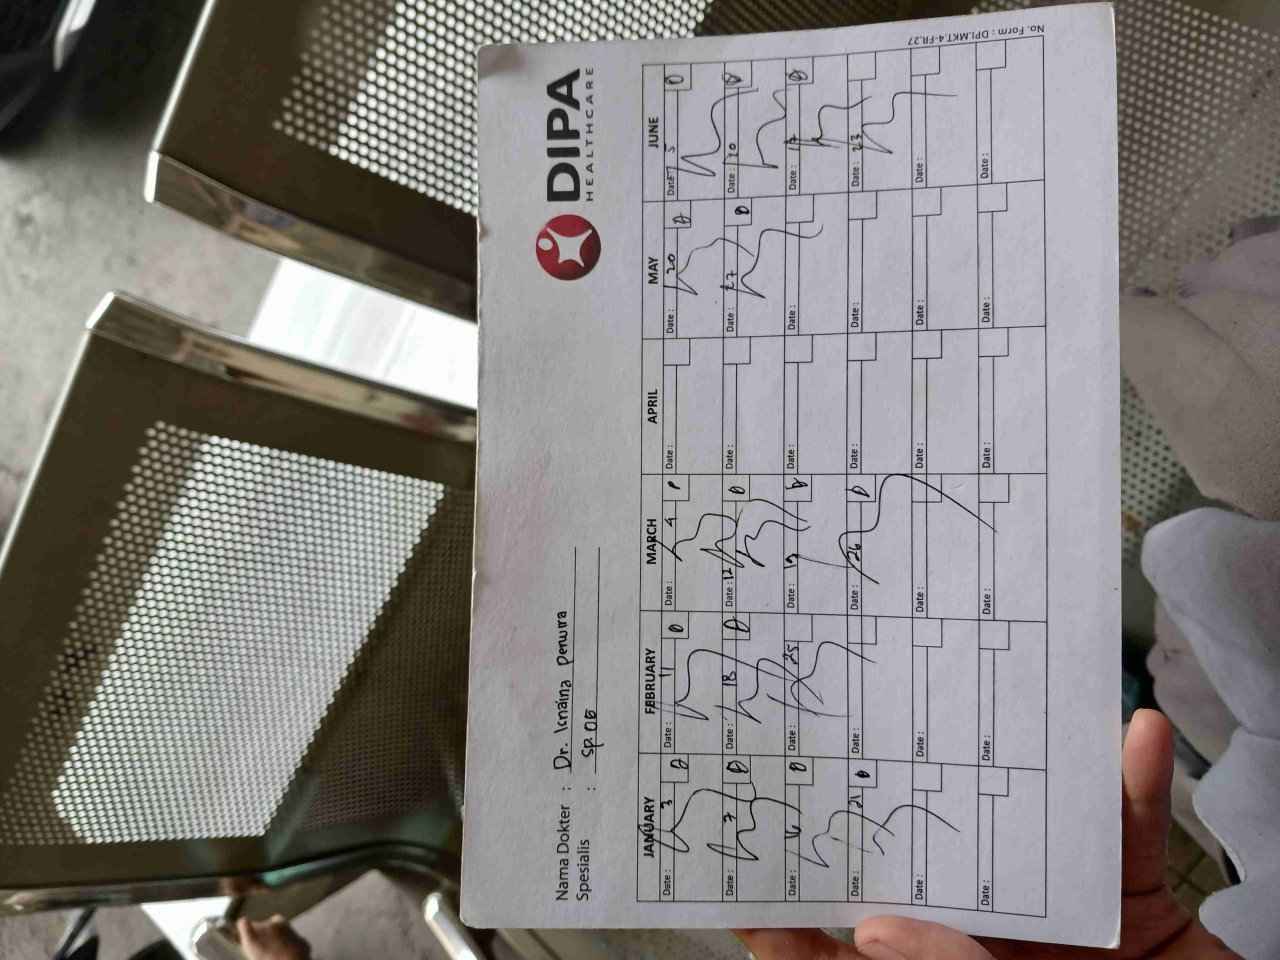 DIPA
HEALTHCARE
Nama Dokter : Dr. Isnaina Perwira
Spesialis : SP.OG
JANUARY FEBRUARY MARCH APRIL MAY JUNE
Date : 3 D Date : 11 D Date : 4 P Date : Date : 20 D Date : 5 D
Date : 7 D Date : 18 D Date : 12 D Date : Date : 27 D Date : 10 D
Date : 16 D Date : 25 Date : 19 D Date : Date : Date : 17 D
Date : 21 D Date : Date : 26 D Date : Date : Date : 23
Date : Date : Date : Date : Date : Date :
Date : Date : Date : Date : Date : Date :
No. Form : DPI.MKT.4-FR.27